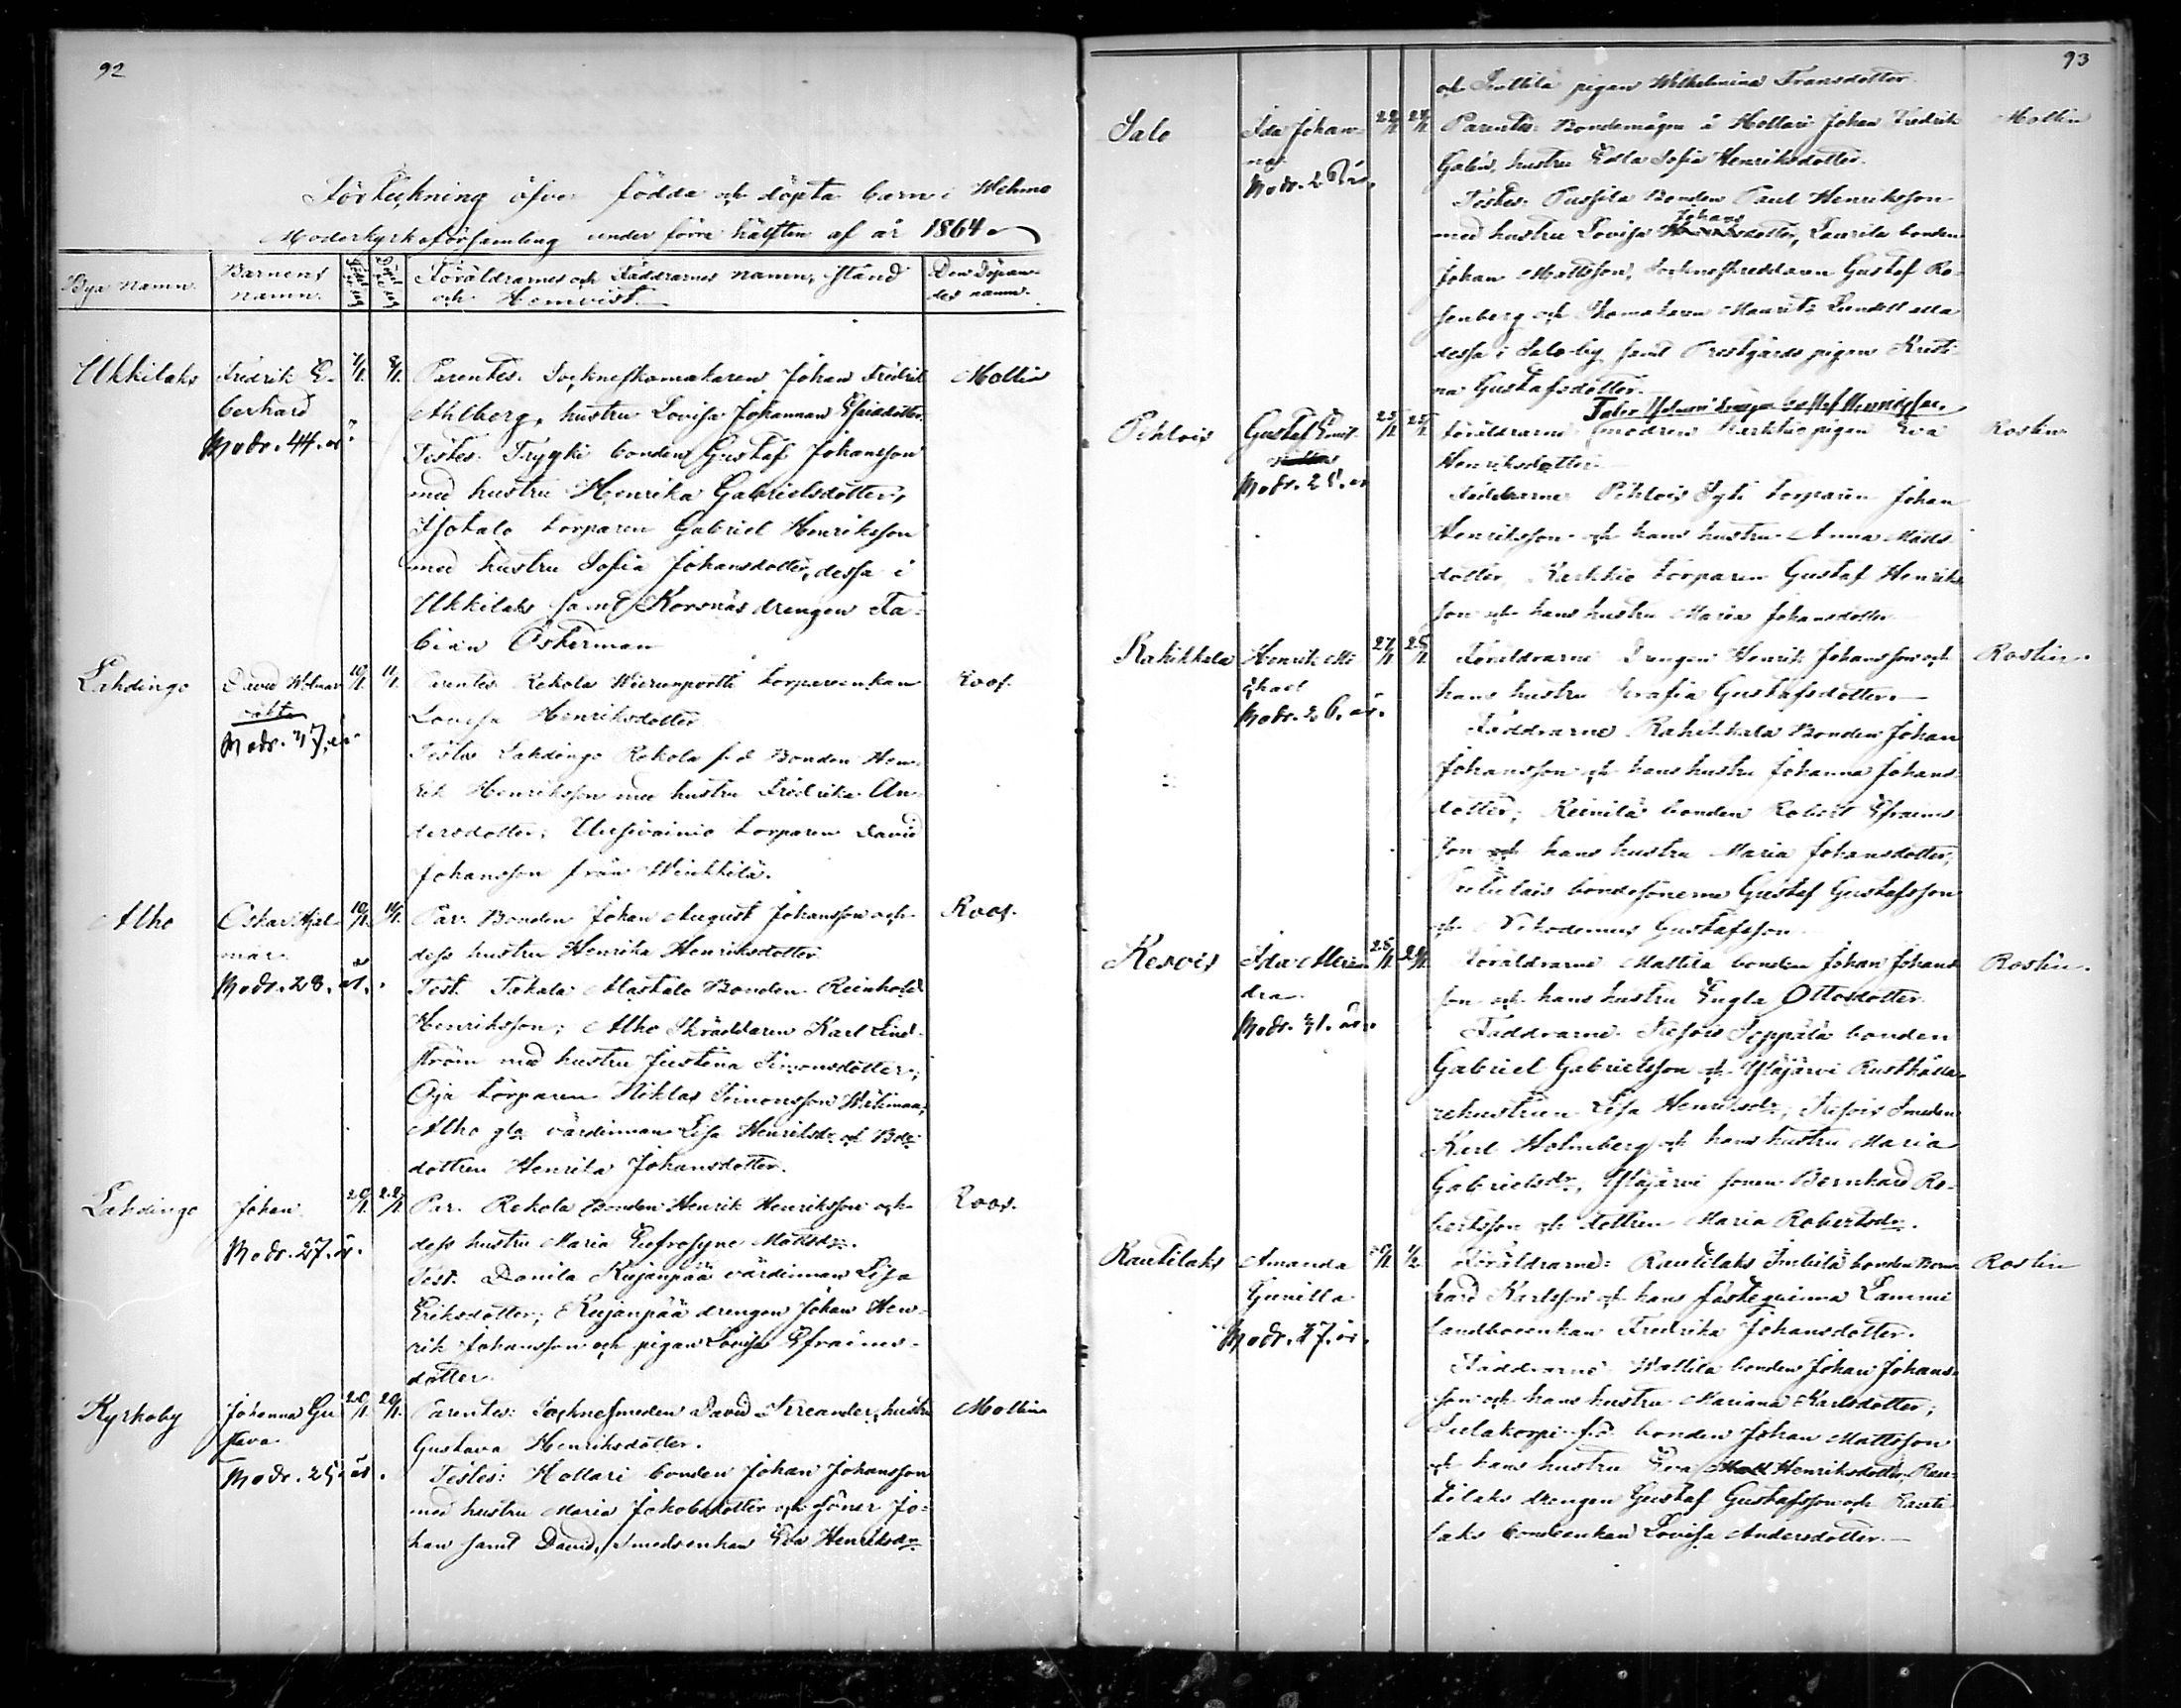 92
Förteckning öfver födda och döpta barn i Wehmo
Moderkyrkoförsamling under förra hälften af år 1864
Bya namn.
Barnens namn.
Född
Döpt
Föräldrarnes och Faddrarnes namn, stånd
och Hemvist.
Den döpan-
des namn.
Ukkilaks
Fredrik E-
berhard
Modr. 44. år
7/1.
8/1.
Parentes. Socknesskomakaren Johan Fredrik
Ahlberg, hustru Lovisa Johannan Esaiedotter.
Testes. Trygki bonden Gustaf Johansson
med hustru Henrika Gabrielsdotter,
Isotalo torparen Gabriel Henriksson
med hustru Sofia Johansdotter, dessa i
Ukkilaks samt Korsnäs drengen Fa-
bian Österman
Mollin
Lahdingo
David Wolmar
oäkta
Modr. 37. år
10/1.
11/1.
Parentes Rekola torpareenkan
Lovisa Henriksdotter
Testes Lahdingo Rekola f.d. Bonden Hen-
rik Henriksson med hustru Fredrika An-
dersdotter; Uusivainio torparen David
Johansson från Winkkilä.
Roos.
Alho
Oskar Hjal-
mar.
Modr. 28. år.
10/1.
Par. Bonden Johan August Johansson och
dess hustru Henrika Henriksdotter
Test. Tokala Alastalo Bonden Reinhold
Henriksson; Alho Skräddaren Karl Lind-
ström med hustru Justina Simonsdotter;
Oja torparen Niklas Simonsson
Alho gla värdinnan Lisa Henriksdr och Bde-
dottren Henrika Johansdotter.
Roos.
Lahdingo
Johan.
Modr. 27. år.
20/1.
22/1.
Par. Rekola Bonden Henrik Henriksson och
dess hustru Maria Eufrosyne Mattsdr.
Test. Danila Kujanpää värdinnan Lisa
Eriksdotter; Kujanpää drengen Johan Hen-
rik Johansson och pigan Lovisa Efraims-
dotter.
Roos.
Kyrkoby
Johanna Gu-
stava
Modr. 25. år.
20/1.
Parentes: Socknesmeden David hustru
Gustava Henriksdotter.
Testes: Hollari bonden Johan Johansson
med hustru Maria Jakobsdotter och söner Jo-
han samt David, Smedsenkan Eva Henriksdr
Mollin
93
och pigan Wilhelmina Fransdotter.
Salo
Ida Johan-
na.
22/1
24/1
Parentes: Bondemågen å Hollari Johan Fredrik
hustru Edla Sofia Henriksdotter.
Testes: Pussila Bonden Paul Henriksson
med hustru Lovisa Johansdotter, Laurila bonden
Johan Mattsson, Sockneskreddaren Gustaf Ro-
senberg och Skomakaren Maurits Lundell alla
dessa i Salo by samt Prestgårds pigan Kristi-
na Gustafsdotter.
Mollin
Pehlois
Gustaf Emil
Fader
Föräldrarne modren pigan Eva
Henriksdotter.
Faddrarne Pehlois torparen Johan
Henriksson och hans hustru Anna Matts-
dotter, torparen Gustaf Henriks-
son och hans hustru Maria Johansdotter.
Roslin.
Rahikkala
Henrik Mi-
chael
Modr. 26. år.
Föräldrarne Drengen Henrik Johansson och
hans hustru Serafia Gustafsdotter.
Faddrarne Rahikkala Bonden Johan
Johansson och hans hustru Johanna Johans-
dotter; Reinilä bonden Robert Efraims-
son och hans hustru Maria Johansdotter,
bondesönerne Gustaf Gustafsson
och Nikodemus Gustafsson
Roslin.
Modr. 31. år.
Föräldrarne Mattila bonden Johan Johans-
son och hans hustru Engla Ottosdotter.
Faddrarne. Seppälä bonden
Gabriel Gabrielsson och Yläjärvi Rusthålla-
rehustrun Lisa Henriksdr; Smeden
Karl Holmberg och hans hustru Maria
Gabrielsdr, Yläjärvi sonen Bernhard Ro-
bertsson och dottren Maria Robertsdr.
Roslin.
Rautilaks
Amanda
Gunilla
Modr. 37. år.
1/2
Föräldrarne: Rautilaks bonden Bern-
hard Karlsson och hans fästeqvinna Lammi
landboenkan Fredrika Johansdotter.
Faddrarne Mattila bonden Johan Johans-
son och hans hustru Mariana Karlsdotter;
f.d. bonden Johan Mattsson
och hans hustru Eva Henriksdotter, Rau-
tilaks drengen Gustaf Gustafsson och Rauti-
laks bondeenkan Lovisa Andersdotter.
Roslin